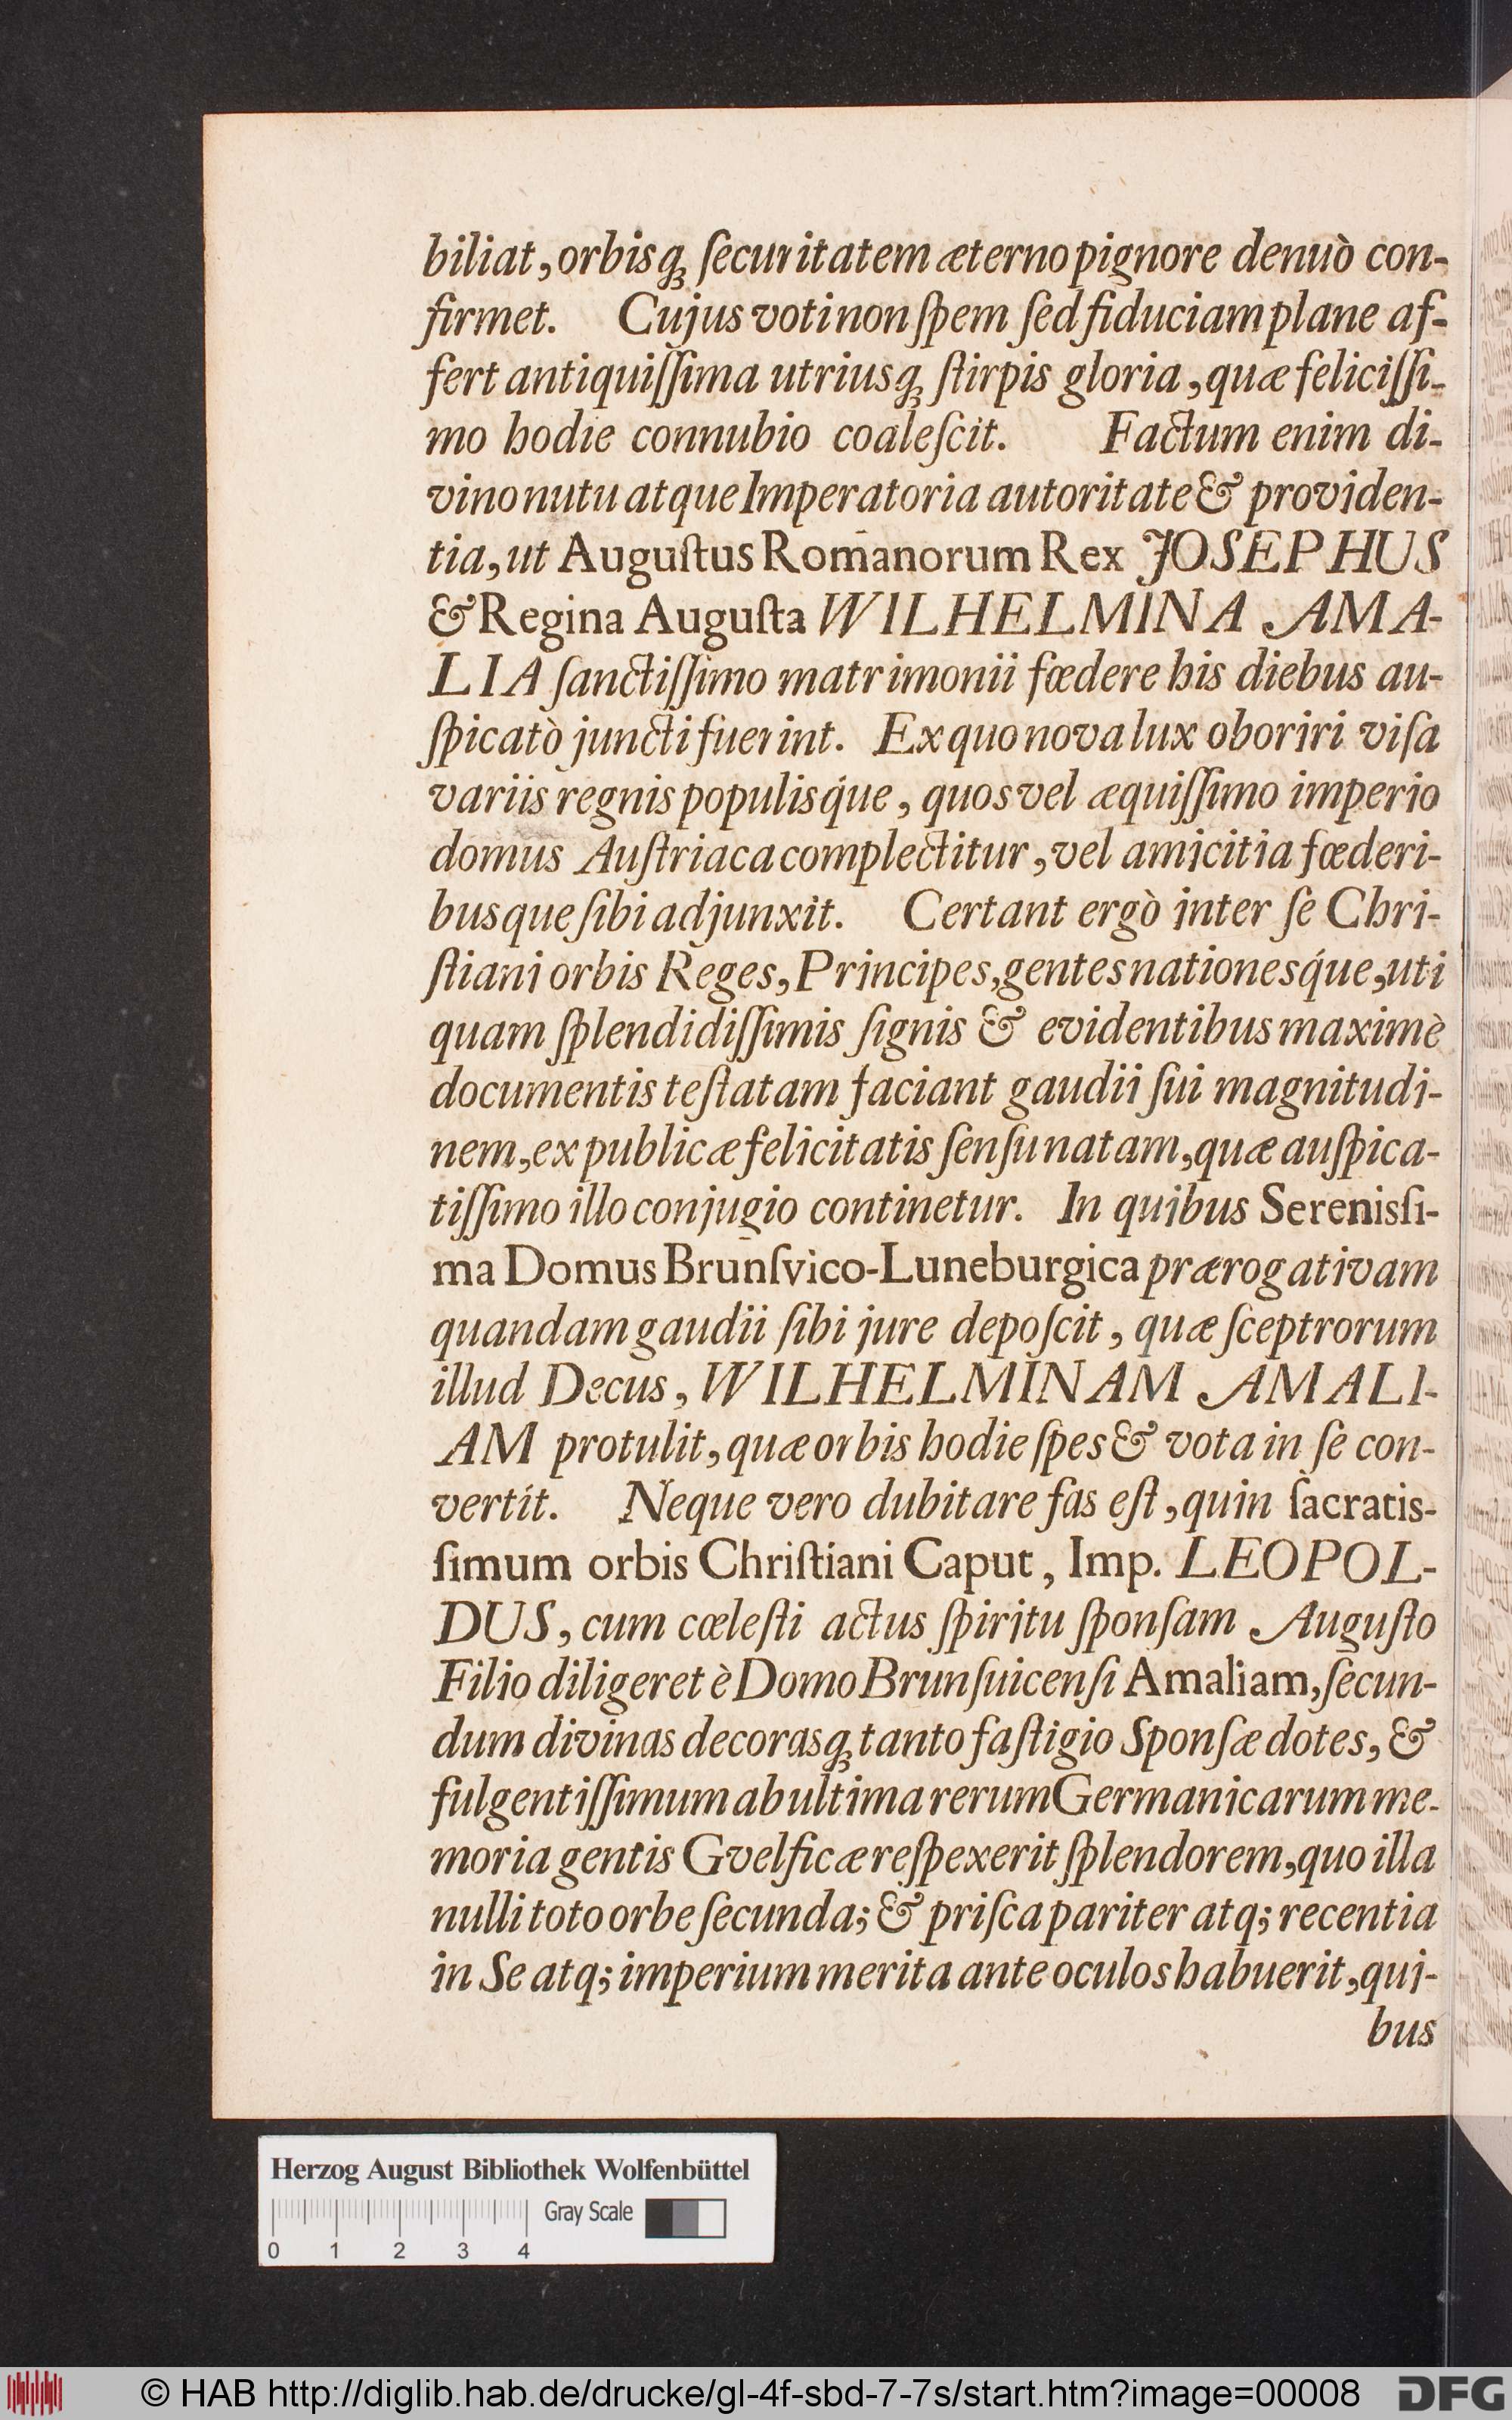 biliat, orbisq́; ſecuritatem æterno pignore denuò con-
firmet. Cujus voti non ſpem ſed fiduciam plane af-
fert antiquiſſima utriusq́; ſtirpis gloria, quæ feliciſſi-
mo hodie connubio coaleſcit. Factum enim di-
vino nutu atque Imperatoria autoritate & providen-
tia, ut Auguſtus Romanorum Rex JOSEPHUS
& Regina Auguſta WILHELMINA AMA-
LIA ſanctiſſimo matrimonii fœdere his diebus au-
ſpicatò juncti fuerint. Ex quo nova lux oboriri viſa
variis regnis populisq́ue, quos vel æquiſſimo imperio
domus Auſtriaca complectitur, vel amicitia fœderi-
busque ſibi adjunxit. Certant ergò inter ſe Chri-
ſtiani orbis Reges, Principes, gentes nationesq́ue, uti
quam ſplendidiſſimis ſignis & evidentibus maximè
documentis teſtatam faciant gaudii ſui magnitudi-
nem, ex publicæ felicitatis ſenſu natam, quæ auſpica-
tiſſimo illo conjugio continetur. In quibus Serenisſi-
ma Domus Brunſvico-Luneburgica prærogativam
quandam gaudii ſibi jure depoſcit, quæ ſceptrorum
illud Decus, WILHELMINAM AMALI-
AM protulit, quæ orbis hodie ſpes & vota in ſe con-
vertit. Neque vero dubitare fas eſt, quin ſacratis-
ſimum orbis Chriſtiani Caput, Imp. LEOPOL-
DUS, cum cœleſti actus ſpiritu ſponſam Auguſto
Filio diligeret è Domo Brunſuicenſi Amaliam, ſecun-
dum divinas decorasq; tanto faſtigio Sponſæ dotes, &
fulgentiſſimum ab ultima rerum Germanicarum me-
moria gentis Gvelficæ reſpexerit ſplendorem, quo illa
nulli toto orbe ſecunda; & priſca pariter atq; recentia
in Se atq; imperium merita ante oculos habuerit, qui-
bus
Herzog August Bibliothek Wolfenbüttel
Gray Scale
0 1 2 3 4
© HAB http://diglib.hab.de/drucke/gl-4f-sbd-7-7s/start.htm?image=00008 DFG